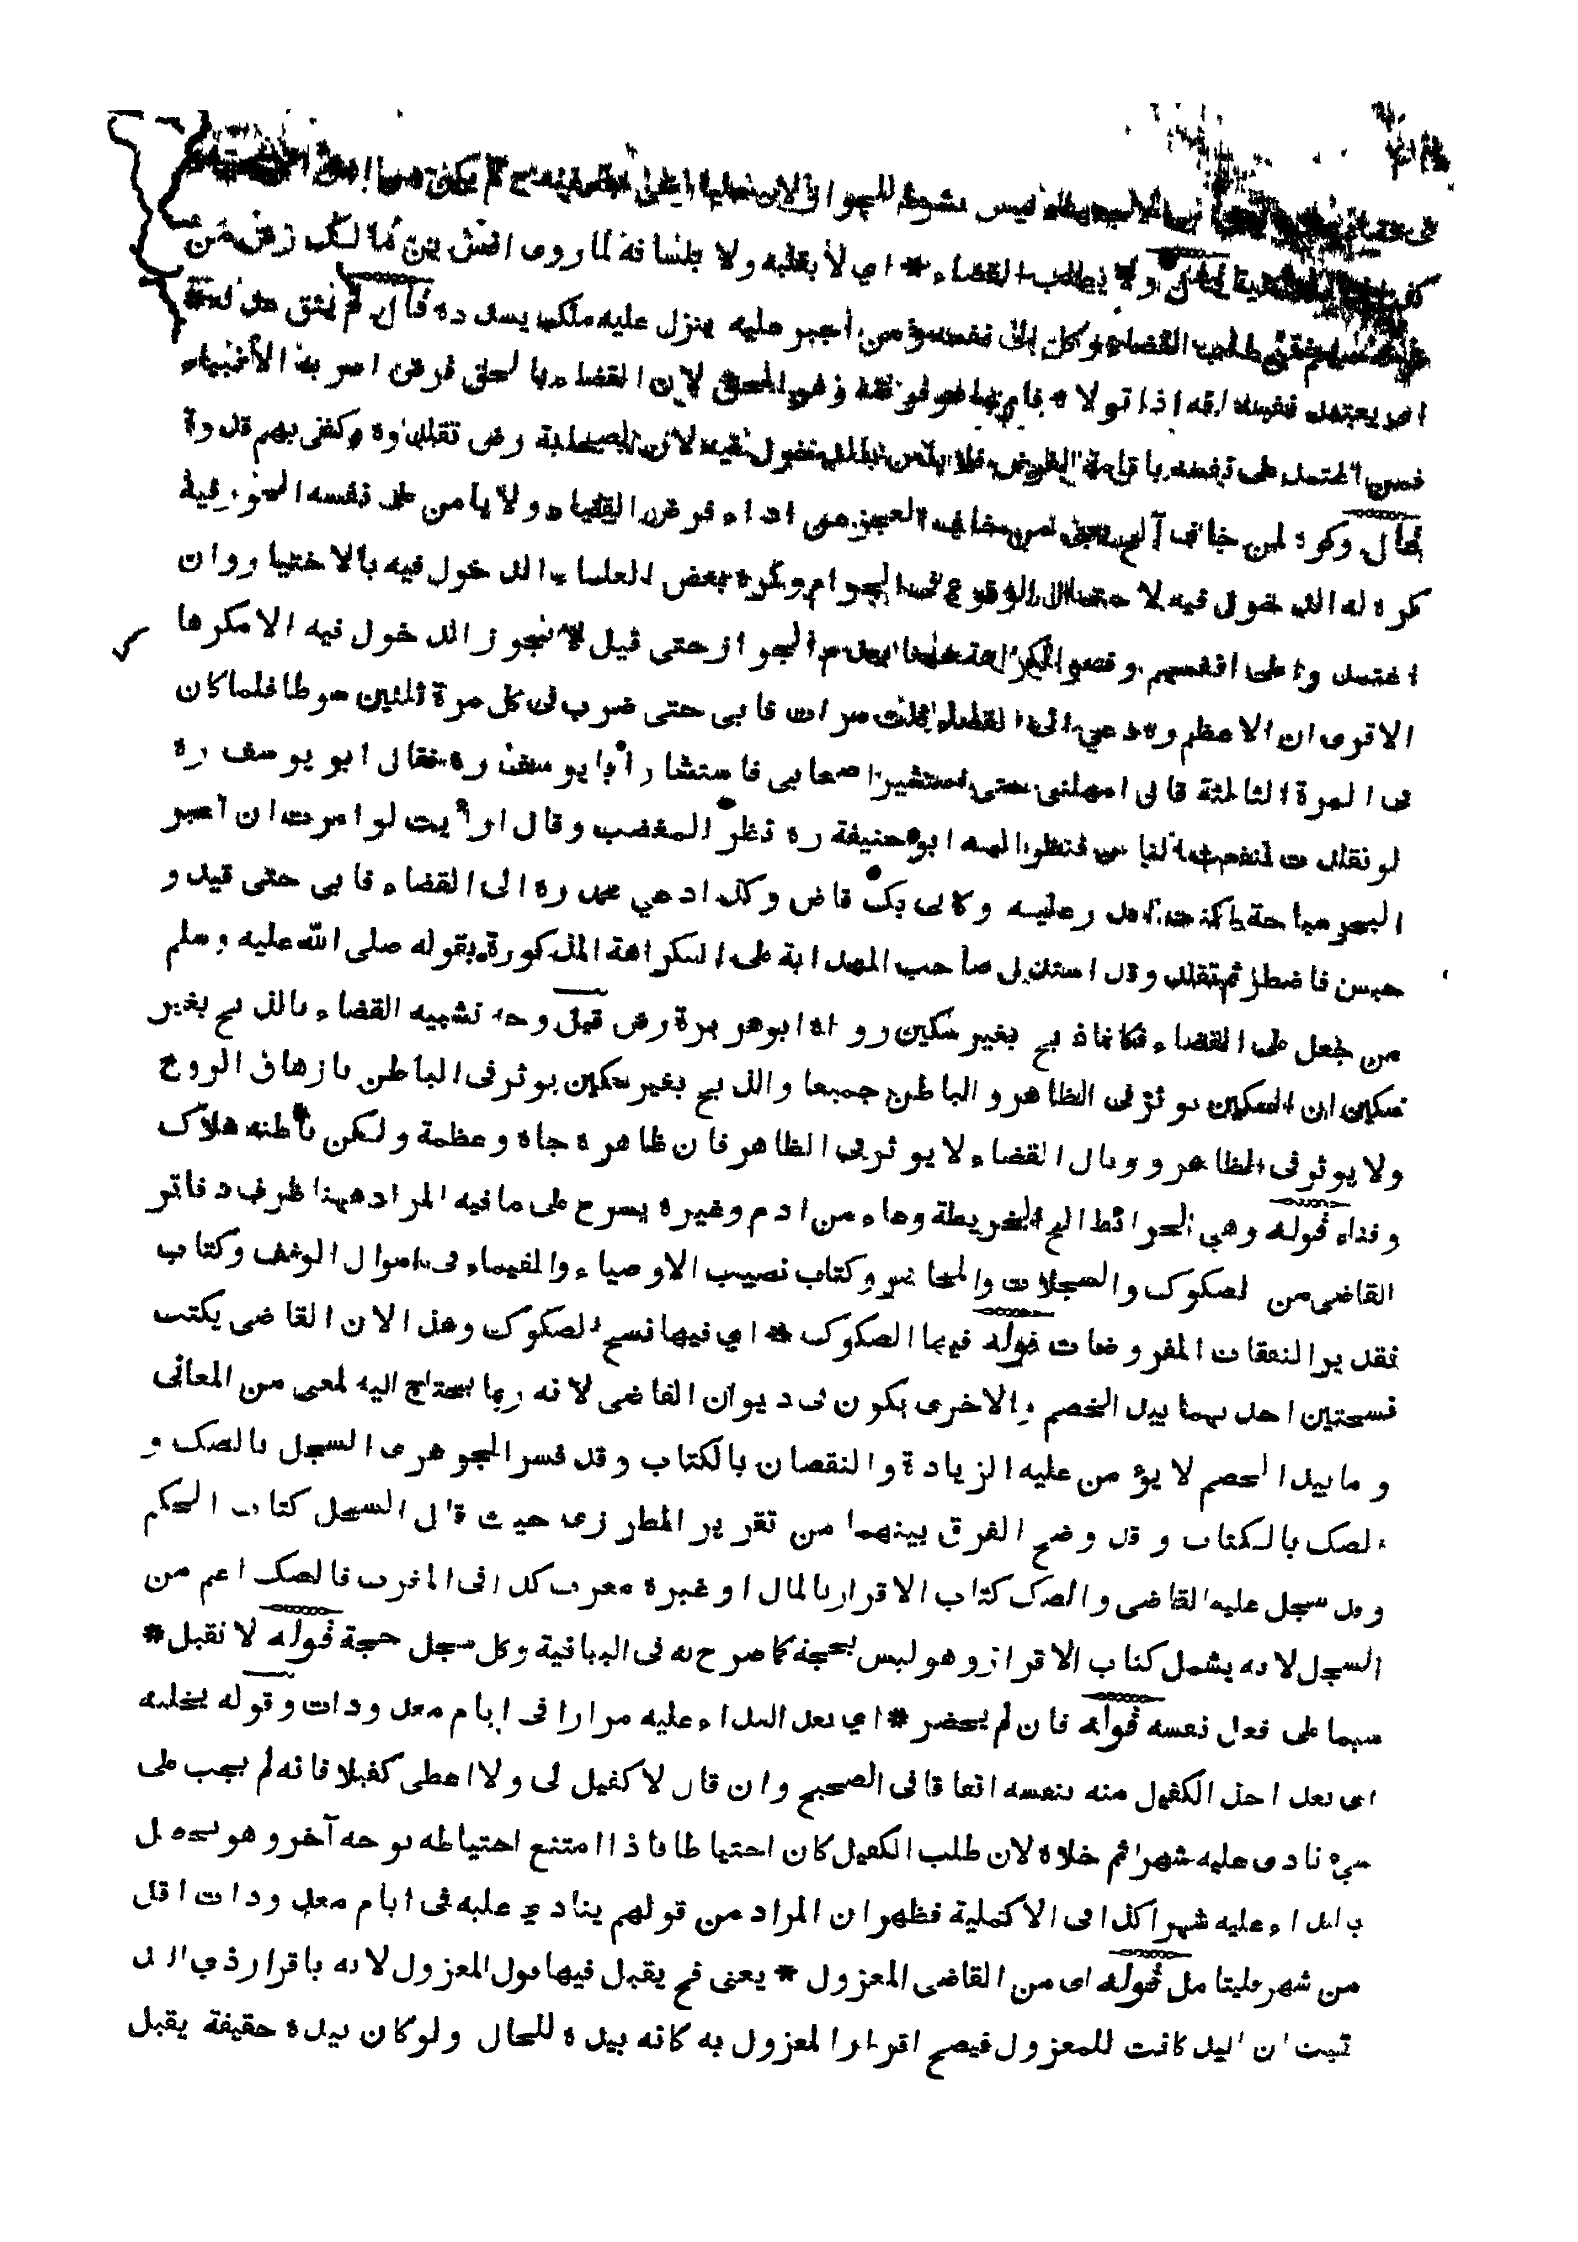 ليس بشرط للجواز لان عليا
ولا يطلب القضاء * اي لا بقلبه ولا بلسانه لما روى انس بن مالك رض من
طلب القضاء وكل الى نفسه ومن اجبر عليه ينزل عليه ملك يسدده قال لم يثق هذا له *
اى يعتمد نفسه انه اذا تولاه قام بما هو فوقفه وهو الحق لان القضاء بالحق فرض امر به الأنبياء
فمن اعتمد على نفسه باقامة الفرض فلا باس لان الصحابة رض تقلدوه وكفى بهم قدوة
قال وكره لمن خاف العجز عن اداء فرض القضاء ولا يامن على نفسه الحيف فيه
كره له الدخول فيه لاحتمال الوقوع فى الحرام وكره بعض العلماء الدخول فيه بالاختيار وان
اعتمد وا على انفسهم وفسر الكراهة ههنا بعدم الجواز حتى قيل لا يجوز الدخول فيه الا مكرها
الا ترى ان الاعظم ره دعي الى القضاء ثلث مرات فابى حتى ضرب فى كل مرة ثلثين سوطا فلما كان
فى المرة الثالثة قال امهلنى حتى استشير اصحابى فاستشار ابا يوسف ره فقال ابو يوسف ره
لو تقلدت لنفعت الناس فنظر اليه ابو حنيفة ره نظر المغضب وقال ارأيت لو امرت ان اعبر
البحر سباحة اكنت اقدر عليه وكانى بك قاض وكذا دعي محمد ره الى القضاء فابى حتى قيد و
حبس فاضطر ثم تقلد وقد استدل صاحب الهداية على الكراهة المذكورة بقوله صلى الله عليه وسلم
من جعل على القضاء فكانما ذبح بغير سكين رواه ابو هريرة رض قيل وجه تشبيه القضاء بالذبح بغير
سكين ان السكين يوثر فى الظاهر والباطن جميعا والذبح بغير سكين يوثر فى الباطن بازهاق الروح
ولا يوثر فى الظاهر ووبال القضاء لا يوثر فى الظاهر فان ظاهره جاه وعظمة ولكن باطنه هلاك
وفناء قوله وهي الخرائط الخ الخريطة وعاء من ادم وغيره يسرح على ما فيه المراد ههنا ظرف دفاتر
القاضى من الصكوك والسجلات والمحاضر وكتاب نصيب الاوصياء والقيماء فى اموال الوقف وكتاب
تقدير النفقات المفروضات قوله فيها الصكوك * اي فيها نسخ الصكوك وهذا لان القاضى يكتب
نسختين احدىهما بيد الخصم والاخرى يكون فى ديوان القاضى لانه ربما يحتاج اليه لمعى من المعانى
وما بيد الخصم لا يؤمن عليه الزيادة والنقصان بالكتاب وقد فسر الجوهرى السجل بالصك و
الصك بالكتاب وقد وضح الفرق بينهما من تقرير المطرزى حيث قال السجل كتاب الحكم
وقد سجل عليه القاضى والصك كتاب الاقرار بالمال او غيره معرب كذا فى المغرب فالصك اعم من
السجل لانه يشمل كتاب الاقرار وهو ليس بحجة كما صرح به فى البناقية وكل سجل حجة قوله لا تقبل *
سيما على فعل نفسه قوله فان لم يحضر * اي بعد النداء عليه مرارا فى ايام معدودات وقوله يخليه
اى بعد اخذ الكفيل منه بنفسه اتفاقا فى الصحيح وان قال لا كفيل لى ولا اعطى كفيلا فانه لم يجب على
شيء نادى عليه شهرا ثم خلاه لان طلب الكفيل كان احتياطا فاذا امتنع احتياطه بوجه آخر وهو يحصل
بالنداء عليه شهرا كذا فى الاكملية فظهر ان المراد من قولهم ينادي عليه فى ايام معدودات اقل
من شهر فليتامل قوله اى من القاضى المعزول * يعنى فح يقبل فيها قول المعزول لانه باقرار ذي اليد
ثبت ان اليد كانت للمعزول فيصح اقرار المعزول به كانه بيده للحال ولو كان بيده حقيقة يقبل